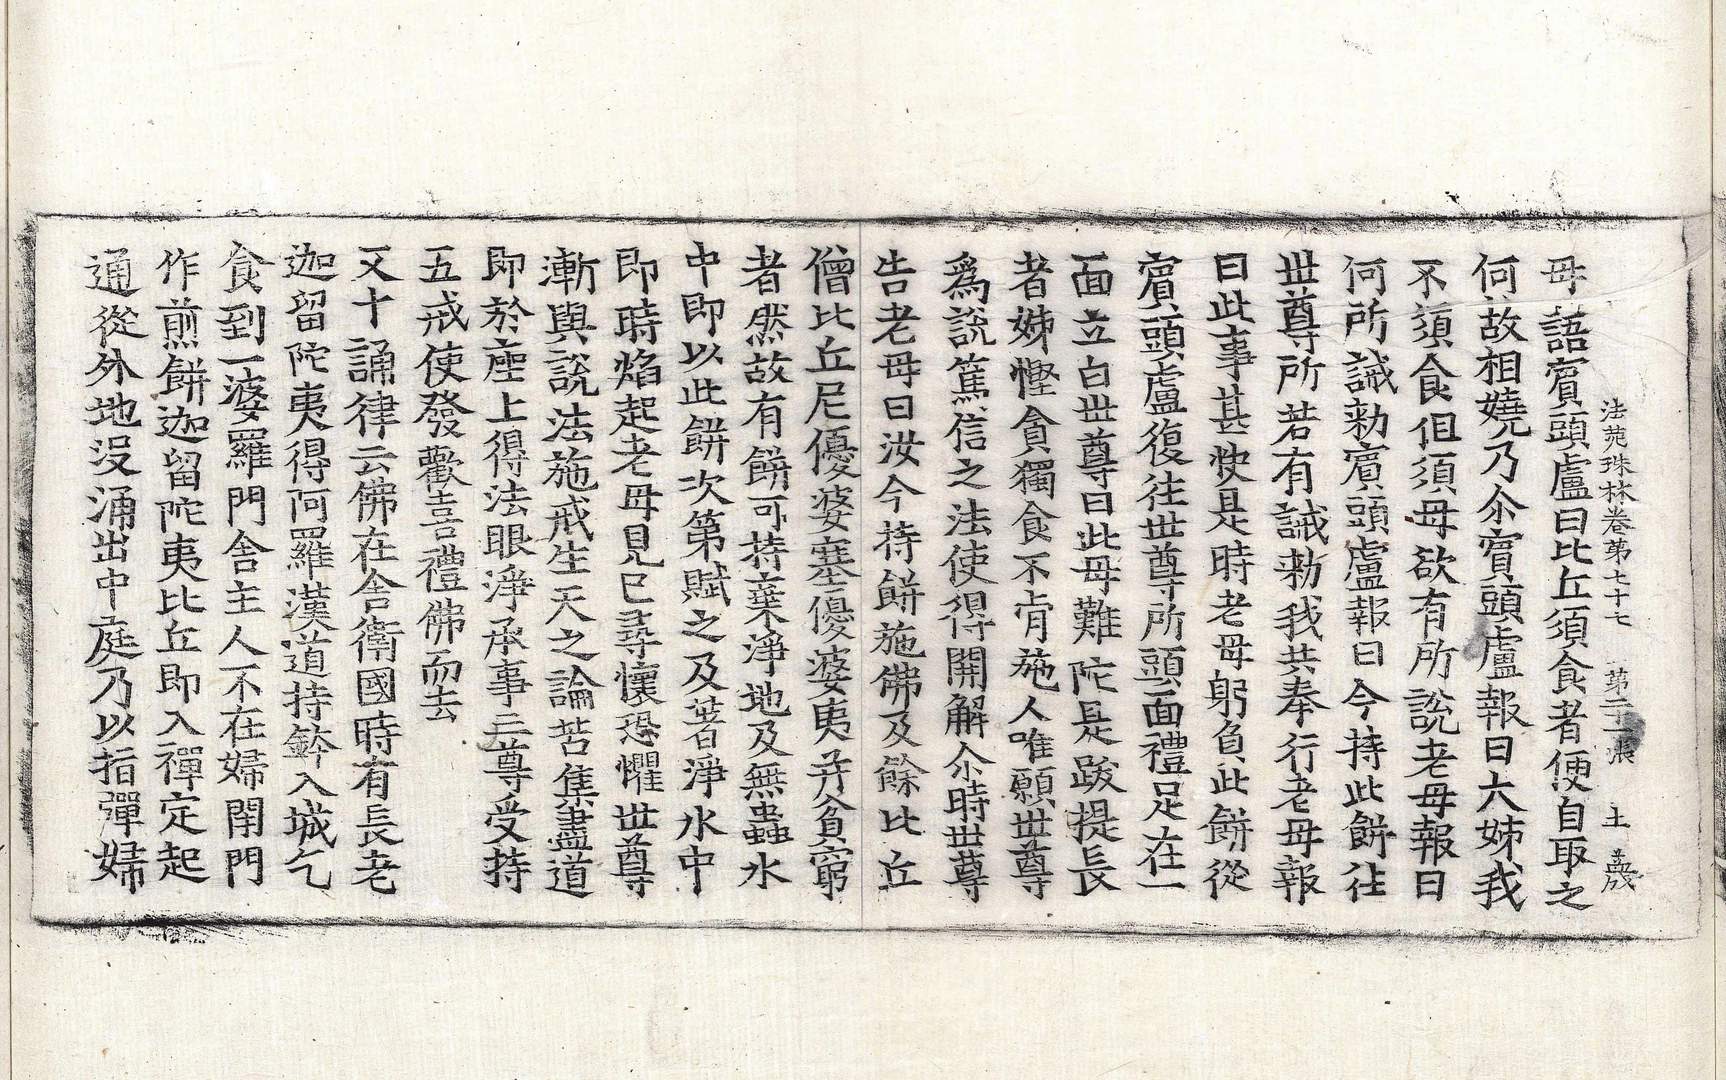 法苑珠林卷第七十七　第二張　土
母語賔頭盧曰比丘須食者便自取之
何故相嬈乃尒賔頭盧報曰大姊我
不須食但須母欲有所說老母報曰
何所誡勑賔頭盧報曰今持此餅往
世尊所若有誡勑我共奉行老母報
曰此事甚快是時老母躬負此餅從
賔頭盧復往世尊所頭面禮足在一
面立白世尊曰此母難陀是跋提長
者姊慳貪獨食不肯施人唯願世尊
爲說篤信之法使得開解尒時世尊
告老母曰汝今持餅施佛及餘比丘
僧比丘尼優婆塞優婆夷并貧窮
者然故有餅可持棄淨地及無蟲水
中即以此餅次第賦之及著淨水中
即時焰起老母見已尋懷恐懼世尊
漸與說法施戒生天之論苦集盡道
即於座上得法眼淨承事三尊受持
五戒使發歡喜禮佛而去
又十誦律云佛在舍衛國時有長老
迦留陀夷得阿羅漢道持鉢入城乞
食到一婆羅門舍主人不在婦閉門
作煎餅迦留陀夷比丘即入禪定起
通從外地沒涌出中庭乃以指彈婦